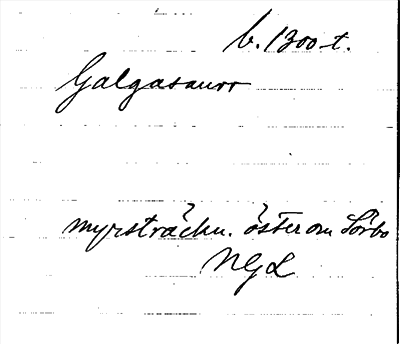 b. 1300-t.
Galgasaurr
myrsträckn. öster om Sörbo
NGL